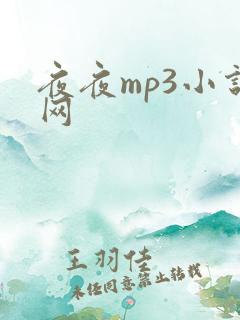 夜夜mp3小説
网
王羽佳
未经同意禁止转载